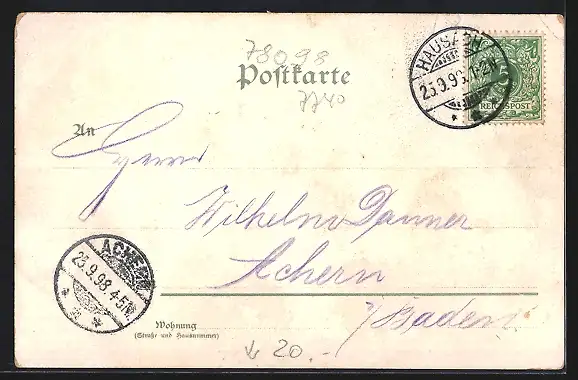 78098
Postkarte
7740
HAUSACH
25.9.98. 1-2N
5
REICHSPOST
An
Herrn
Wilhelm Danner
Achern
i/Baden
ACHERN
25.9.98. 4-5N.
Wohnung
(Straße und Hausnummer)
20.-